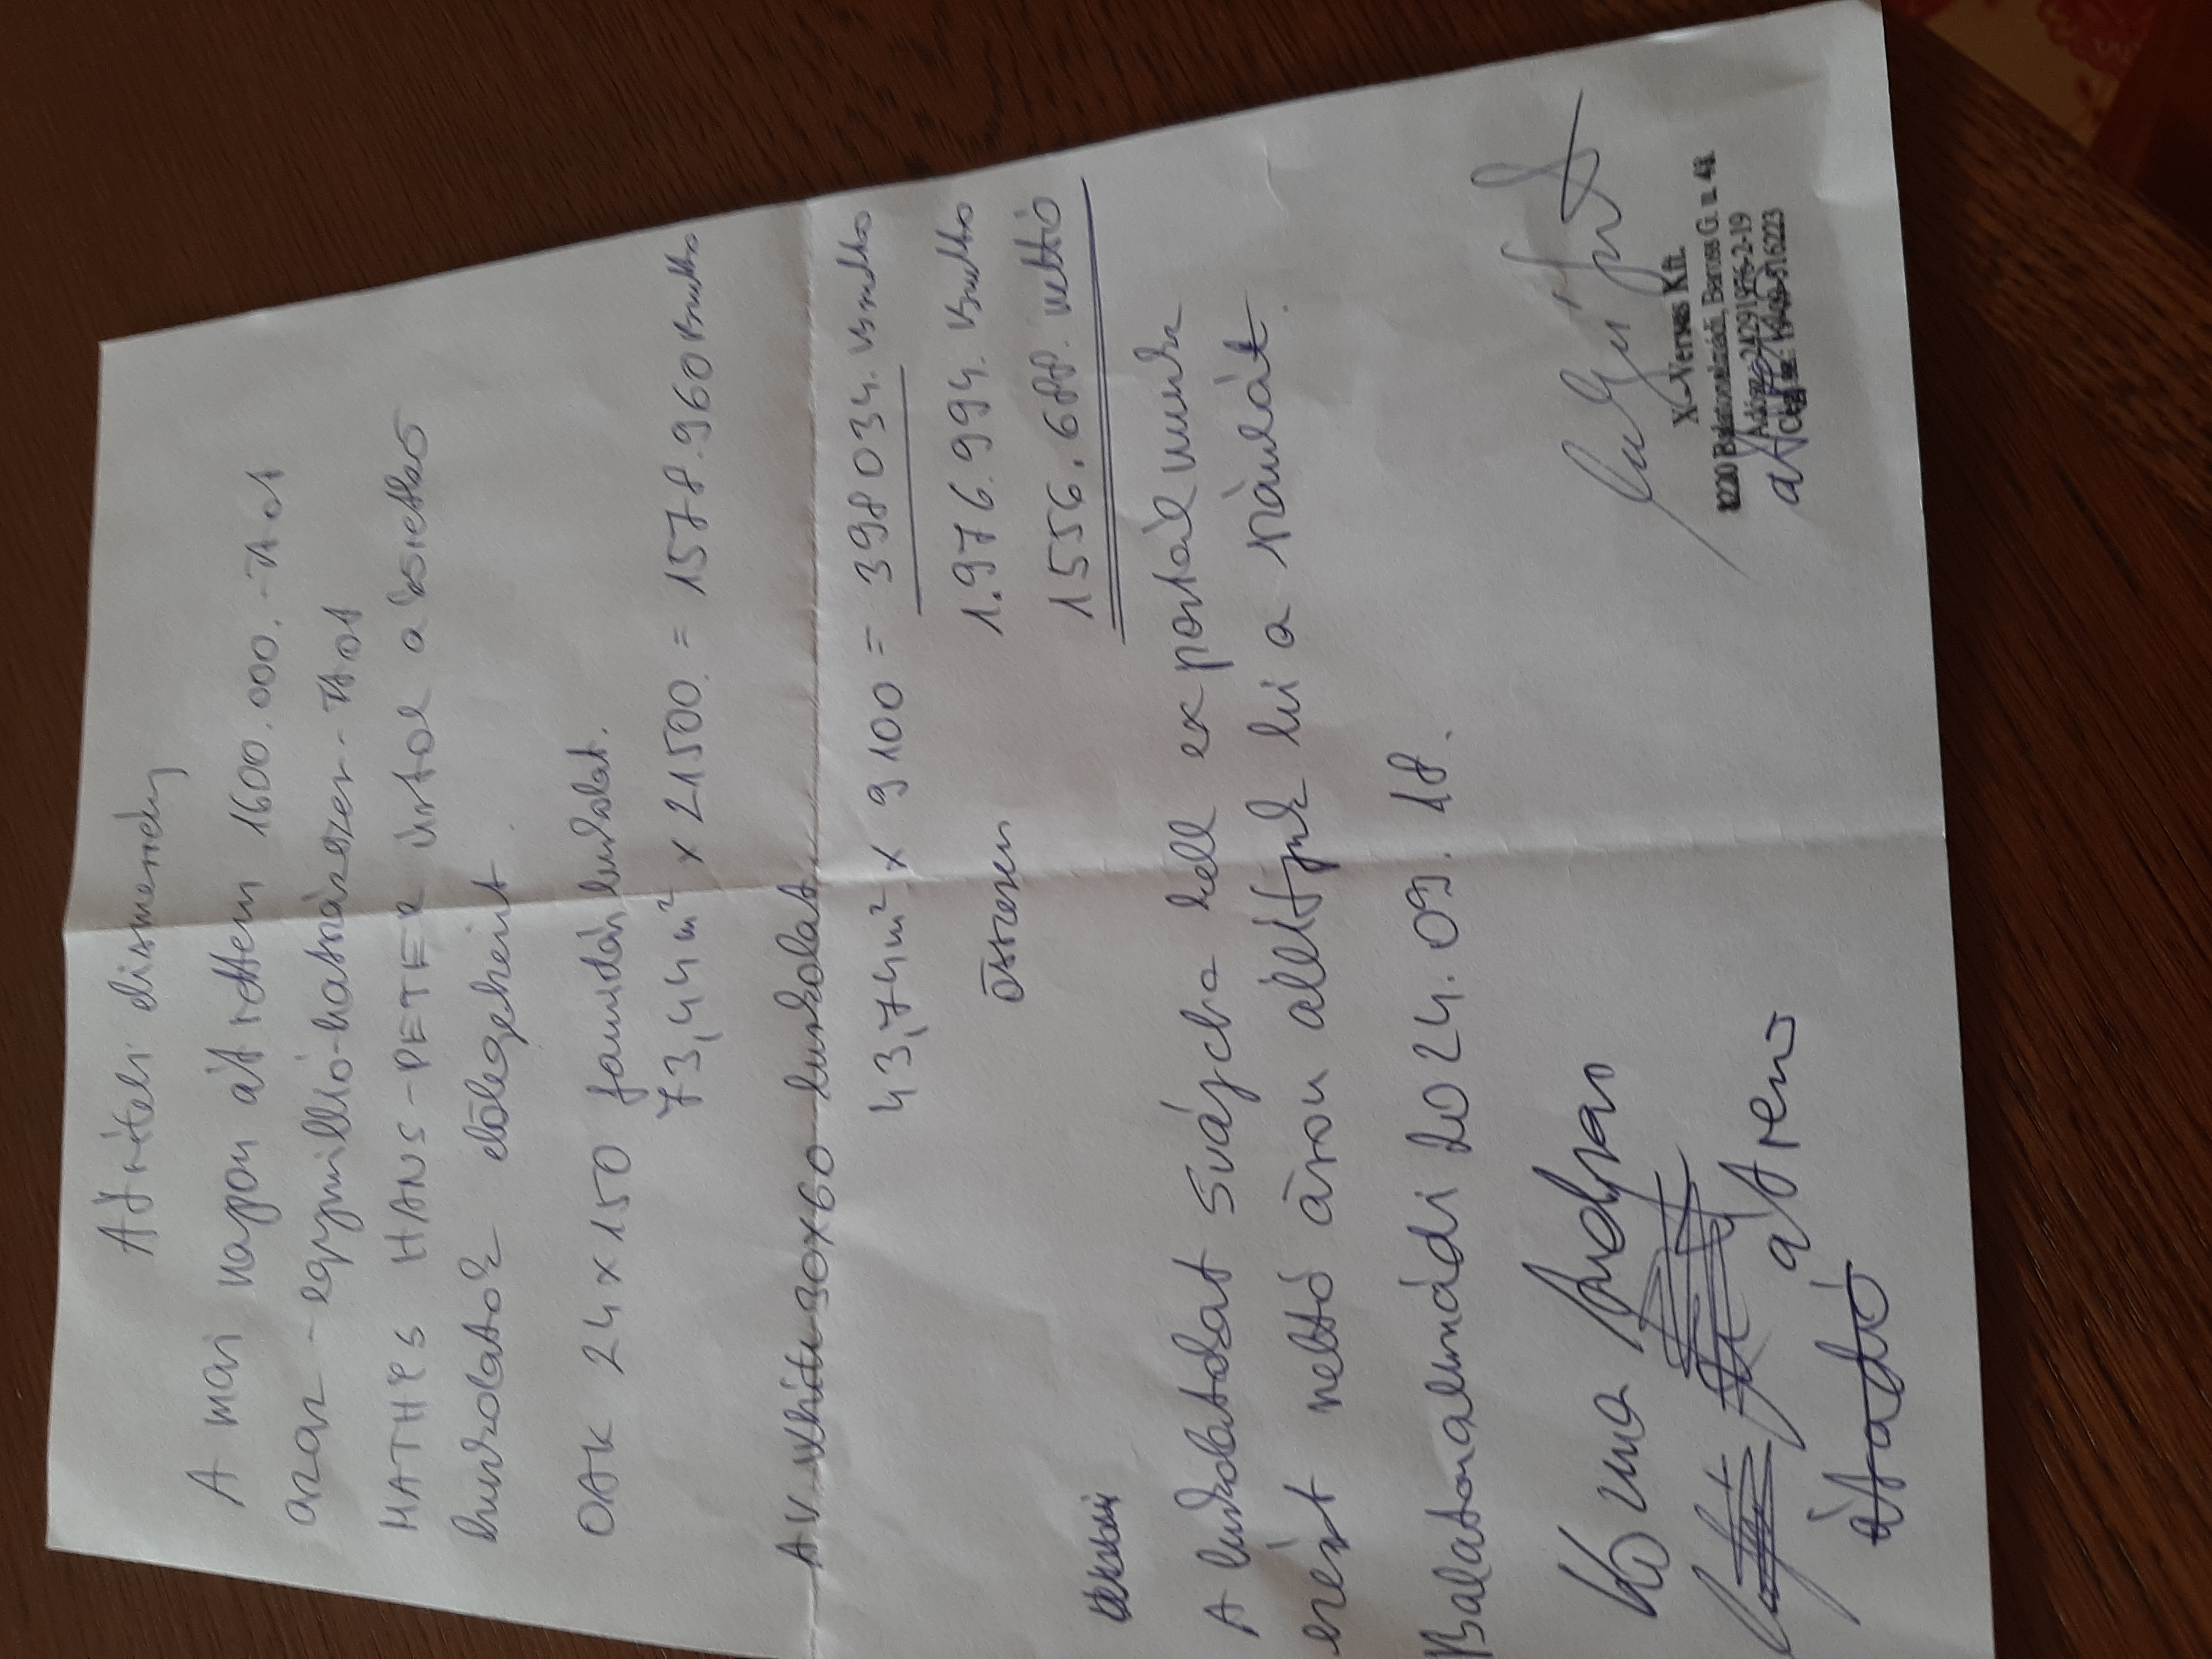 Átvételi elismervény
A mai napon átvettem 1600.000.-Ft-ot
azaz - egymillió-hatszázezer-Ft-ot
MATHYS HANS-PETER úrtól a következő
burkolatok előlegeként
OAK 24x150 famintás burkolat.
73,44m² x 21500. = 1578.960 Bruttó
AV. White 30x60 burkolat
43,74m² x 9100 = 398034. Bruttó
Összesen 1.976.994. Bruttó
1556.688. nettó
A burkolatokat Svájcba kell exportálnunk
ezért nettó áron állítjuk ki a számlát.
Balatonalmádi 2024. 09. 18.
X-Versus Kft.
8220 Balatonalmádi, Baross G. u. 48.
átvevő
átadó